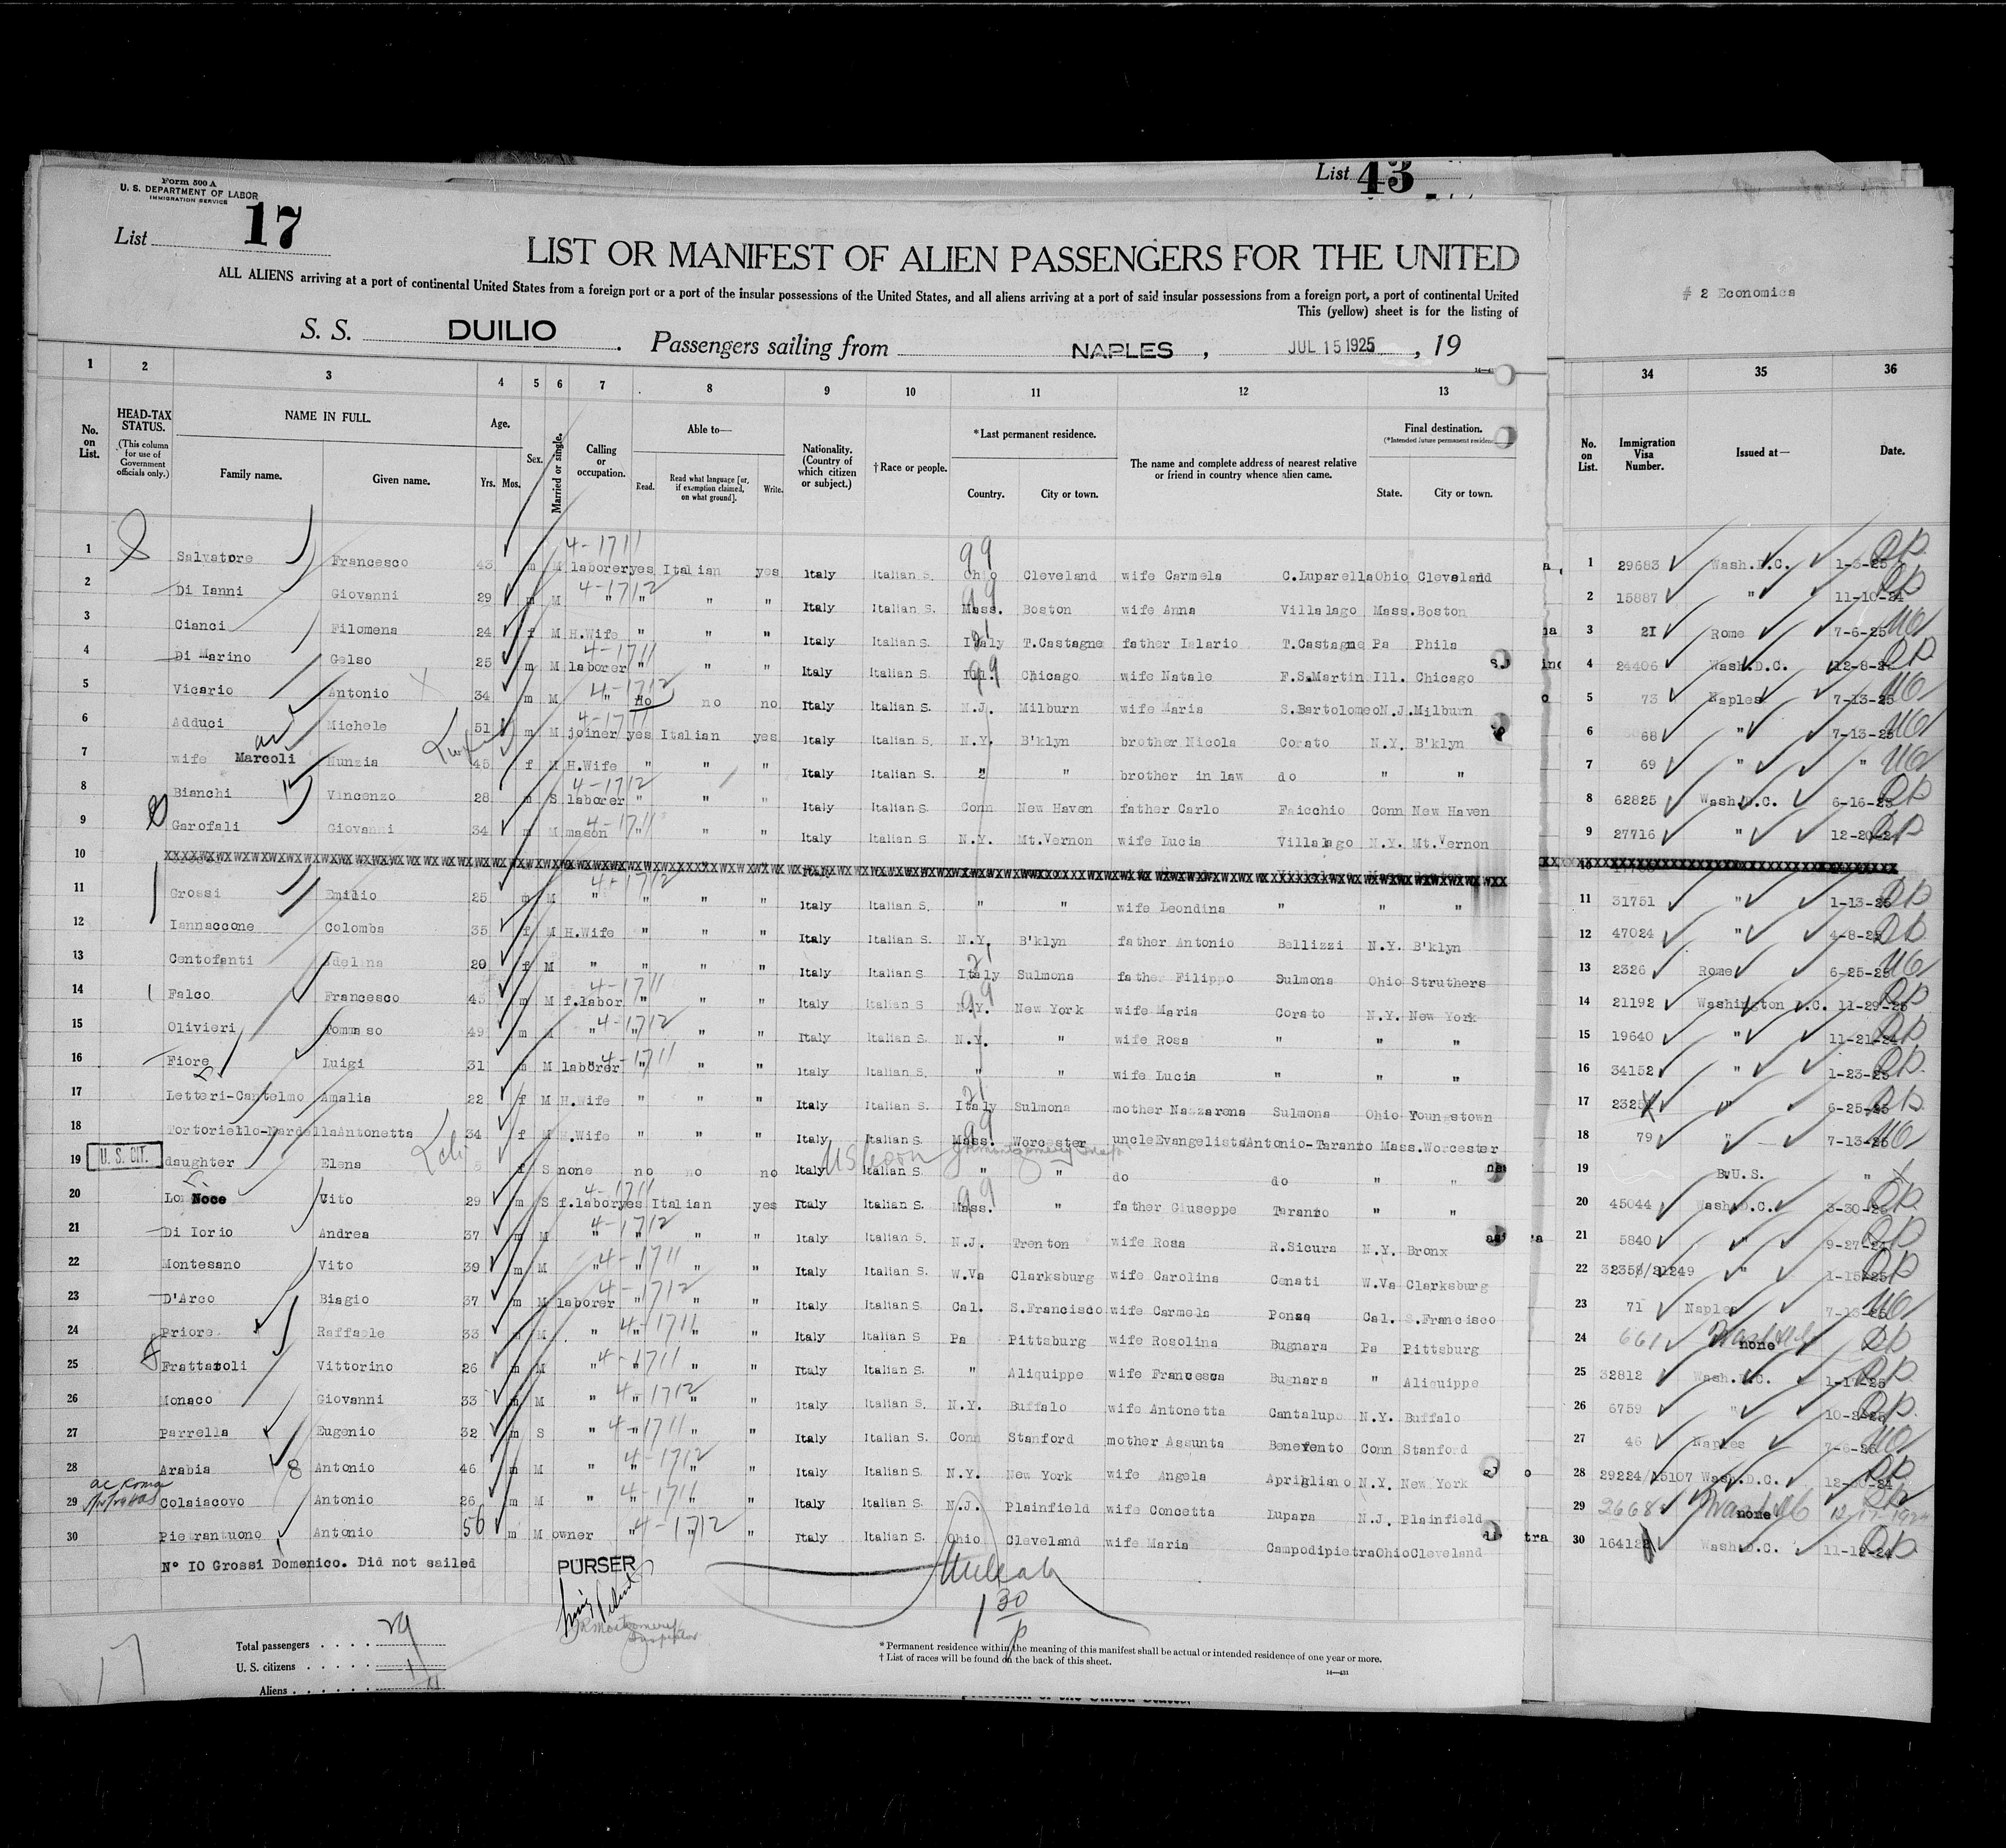 List 43
Form 500 A
U. S. DEPARTMENT OF LABOR
IMMIGRATION SERVICE
List 17
LIST OR MANIFEST OF ALIEN PASSENGERS FOR THE UNITED
ALL ALIENS arriving at a port of continental United States from a foreign port or a port of the insular possessions of the United States, and all aliens arriving at a port of said insular possessions from a foreign port, a port of continental United
This (yellow) sheet is for the listing of
# 2 Economics
S. S. DUILIO. Passengers sailing from NAPLES, JUL 15 1925, 19
1 2 3 4 5 6 7 8 9 10 11 12 13 34 35 36
No. on List. HEAD-TAX STATUS. (This column for use of Government officials only.) NAME IN FULL. Family name. Given name. Age. Yrs. Mos. Sex. Married or single. Calling or occupation. Able to— Read. Read what language [or, if exemption claimed, on what ground]. Write. Nationality. (Country of which citizen or subject.) †Race or people. *Last permanent residence. Country. City or town. The name and complete address of nearest relative or friend in country whence alien came. Final destination. (*Intended future permanent residence) State. City or town. No. on List. Immigration Visa Number. Issued at— Date.
1 Salvatore Francesco 43 m M laborer yes Italian yes Italy Italian S. Ohio Cleveland wife Carmela C.Luparella Ohio Cleveland 1 29683 Wash.D.C. 1-3-25
2 Di Ianni Giovanni 29 m M " " " " Italy Italian S. Mass. Boston wife Anna Villalago Mass. Boston 2 15887 " 11-10-24
3 Cianci Filomena 24 f M H.Wife " " " Italy Italian S. Italy T.Castagne father Ialario T.Castagne Pa Phila 3 21 Rome 7-6-25
4 Di Marino Celso 25 m M laborer " " " Italy Italian S. Ill. Chicago wife Natale F.S.Martin Ill. Chicago 4 24406 Wash.D.C. 12-8-24
5 Vicario Antonio 34 m M " no no no Italy Italian S. N.J. Milburn wife Maria S.Bartolomeo N.J. Milburn 5 73 Naples 7-13-25
6 Adduci Michele 51 m M joiner yes Italian yes Italy Italian S. N.Y. B'klyn brother Nicola Corato N.Y. B'klyn 6 68 " 7-13-25
7 wife Marcoli Nunzia 45 f M H.Wife " " " Italy Italian S. " " brother in law do " " 7 69 " "
8 Bianchi Vincenzo 28 m S laborer " " " Italy Italian S. Conn New Haven father Carlo Faicchio Conn New Haven 8 62825 Wash.D.C. 6-16-25
9 Garofali Giovanni 34 m M mason " " " Italy Italian S N.Y. Mt.Vernon wife Lucia Villalago N.Y. Mt.Vernon 9 27716 " 12-20-24
10
11 Grossi Emidio 25 m M " " " " Italy Italian S. " " wife Leondina " " " 11 31751 " 1-13-25
12 Iannaccone Colomba 35 f M H.Wife " " " Italy Italian S. N.Y. B'klyn father Antonio Bellizzi N.Y. B'klyn 12 47024 " 4-8-25
13 Centofanti Adelina 20 f M " " " " Italy Italian S. Italy Sulmona father Filippo Sulmona Ohio Struthers 13 2326 Rome 6-25-25
14 Falco Francesco 43 m M f.labor " " " Italy Italian S N.Y. New York wife Maria Corato N.Y. New York 14 21192 Washington D.C. 11-29-25
15 Olivieri Tommaso 49 m M " " " " Italy Italian S. N.Y. " wife Rosa " " " 15 19640 " 11-21-24
16 Fiore Luigi 31 m M laborer " " " Italy Italian S. " " wife Lucia " " " 16 34152 " 1-23-25
17 Letteri-Cantelmo Amalia 22 f M H.Wife " " " Italy Italian S. Italy Sulmona mother Nazzarena Sulmona Ohio Youngstown 17 2325 " 6-25-25
18 Tortoriello-Dardella Antonetta 34 f M H.Wife " " " Italy Italian S. Mass. Worcester uncle Evangelista Antonio-Taranto Mass. Worcester 18 79 " 7-13-25
19 U. S. CIT. daughter Elena f S none no no no Italy US born Italian S. " " do do " " 19 By U.S. "
20 Lo Noce Vito 29 m S f.labor yes Italian yes Italy Italian S. Mass. " father Giuseppe Taranto " " 20 45044 Wash.D.C. 3-30-25
21 Di Iorio Andrea 37 m M " " " " Italy Italian S. N.J. Trenton wife Rosa R.Sicura N.Y. Bronx 21 5840 " 9-27-24
22 Montesano Vito 39 m M " " " " Italy Italian S. W.Va Clarksburg wife Carolina Cenati W.Va Clarksburg 22 32358/21249 " 1-15-25
23 D'Arco Biagio 37 m M laborer " " " Italy Italian S. Cal. S.Francisco wife Carmela Ponza Cal. S.Francisco 23 71 Naples 7-13-25
24 Priore Raffaele 33 m M " " " " Italy Italian S. Pa Pittsburg wife Rosolina Bugnara Pa Pittsburg 24 661 none
25 Frattaroli Vittorino 26 m M " " " " Italy Italian S. " Aliquippe wife Francesca Bugnara " Aliquippe 25 32812 Wash.D.C. 1-17-25
26 Monaco Giovanni 33 m M " " " " Italy Italian S. N.Y. Buffalo wife Antonetta Cantalupo N.Y. Buffalo 26 6759 " 10-2-25
27 Parrella Eugenio 32 m S " " " " Italy Italian S. Conn Stanford mother Assunta Benevento Conn Stanford 27 46 Naples 7-6-25
28 Arabia Antonio 46 m M " " " " Italy Italian S. N.Y. New York wife Angela Aprigliano N.Y. New York 28 29224/15107 Wash.D.C. 12-30-24
29 Colaiacovo Antonio 26 m M " " " " Italy Italian S. N.J. Plainfield wife Concetta Lupara N.J. Plainfield 29 26688 none 12-17-1924
30 Pietrantuono Antonio 50 m M owner " " " Italy Italian S. Ohio Cleveland wife Maria Campodipietra Ohio Cleveland 30 16412 Wash.D.C. 11-12-24
N° 10 Grossi Domenico. Did not sailed
PURSER
JR Montgomery
Inspector
1 30 p
Total passengers . . . . 29
U. S. citizens . . . . . 1
Aliens . . . . . .
17
* Permanent residence within the meaning of this manifest shall be actual or intended residence of one year or more.
† List of races will be found on the back of this sheet.